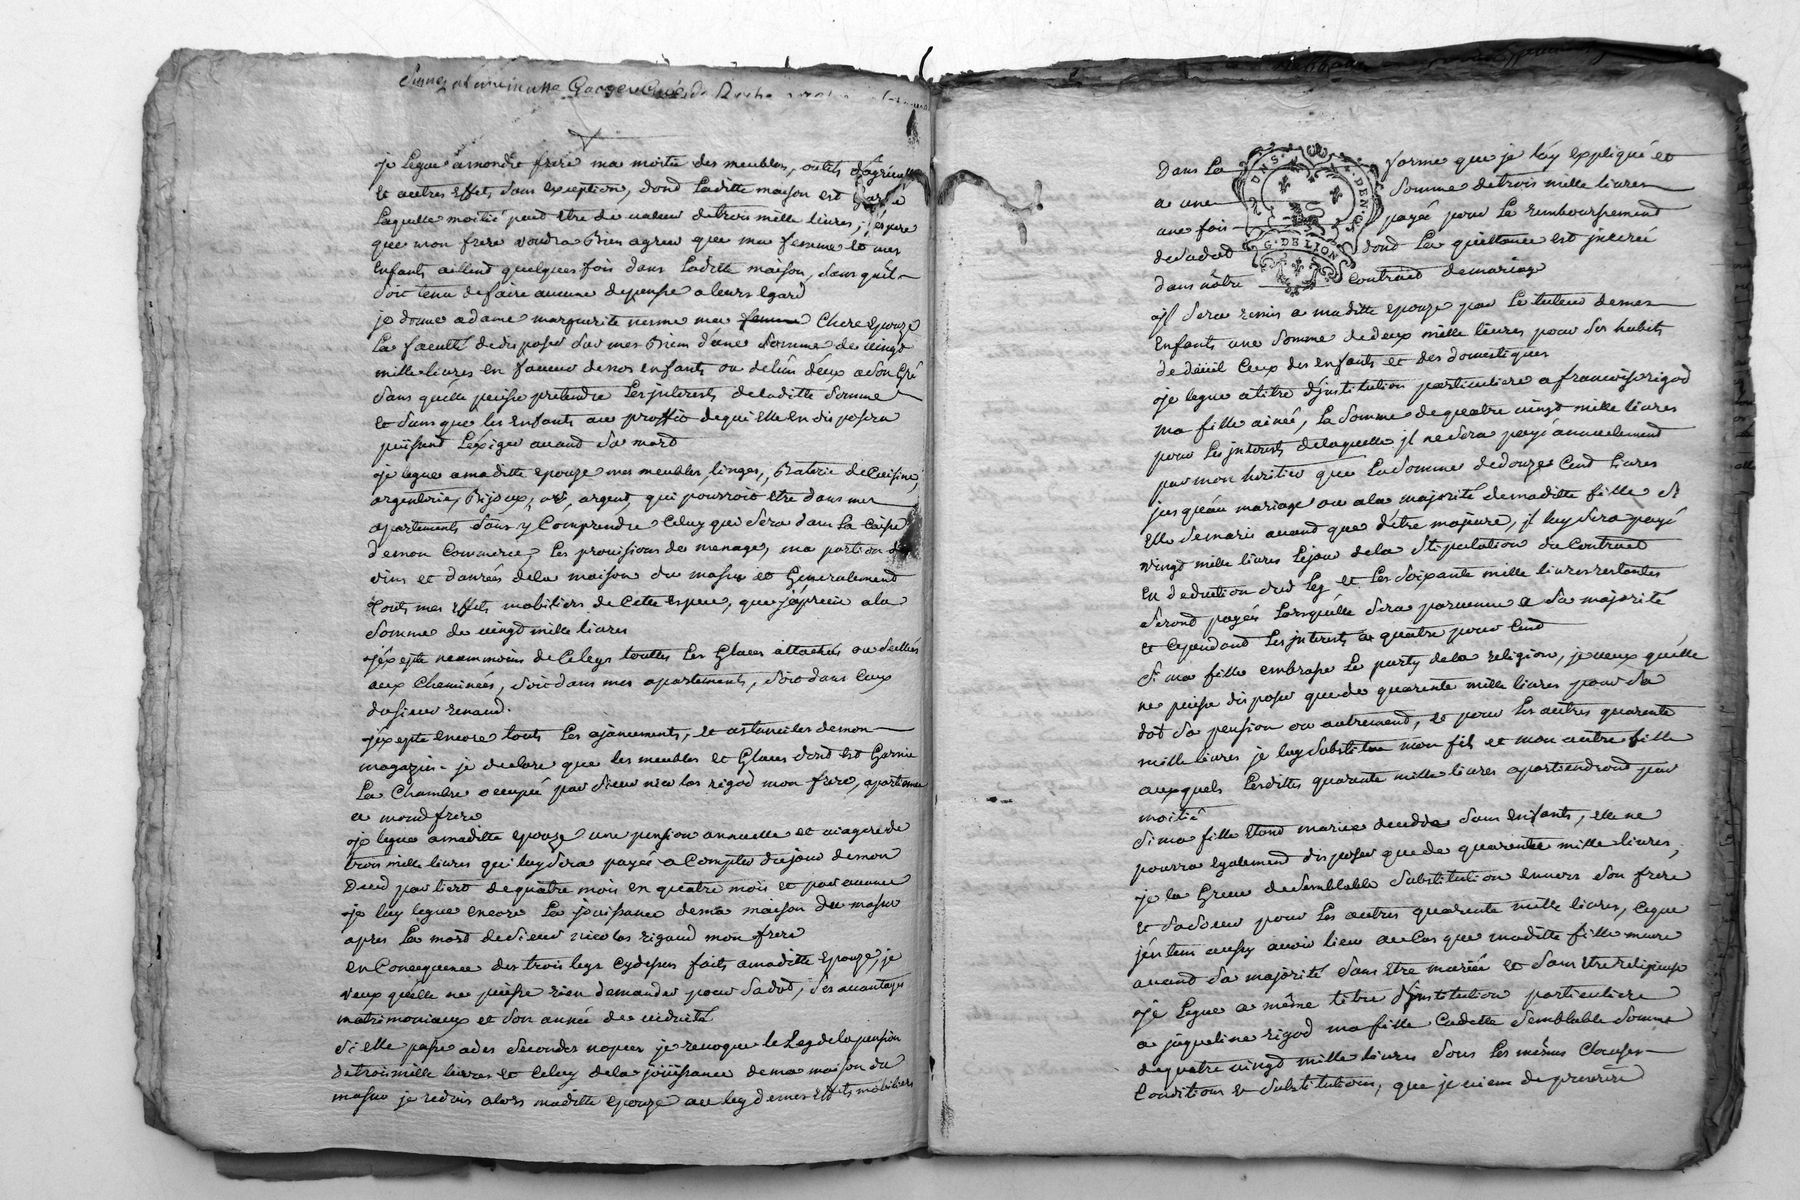 je Legue a mondit frere ma moitié des meubles, outils d'agricul
et autres Effets sans exception, dont Laditte maison est garnie
Laquelle moitié peut etre de valeur de trois mille livres, j'espere
que mon frere voudra Bien agreer que ma femme et mes
Enfants aillent quelques fois dans Laditte maison, sans qu'il
Soit tenu de faire aucune depense a leurs egard
je donne a dame marguerite nesme ma femme Chere epouze
La faculté de disposer sur mes Biens d'une Somme de vingt
mille livres en faveur de nos enfants ou de l'un d'eux a son Gré
Sans qu'elle puisse pretendre Les jnterests de laditte Somme
et Sans que les Enfants au proffit de qui Elle en disposera
puissent L'exiger avant Sa mort
je legue a maditte epouze mes meubles, linges, Baterie de Cuisine,
argenterie, Bijoux, or, argent, qui pourroit etre dans mes
apartements, Sans y Comprendre Celuy qui Sera dans La Caisse
de mon Commerce, Les provisions de menage, ma portion de
vins et danrées de la maison du masur et Generalement
touts mes Effets mobiliers de Cette espece, que j'aprecie a la
Somme de vingt mille livres
j'excepte neammoins de Ce legs touttes Les Glaces attachées ou Scellées
aux Cheminées, Soit dans mes apartements, Soit dans Ceux
du sieur renaud.
j'excepte encore touts Les ajancements, et astanciles de mon
magazin - je declare que les meubles et Glaces dont est Garnie
La Chambre occupée par Sieur nicolas rigod mon frere, apartiennent
a mondit frere
je legue a maditte epouze une pension annuelle et viagere de
trois mille livres qui luy Sera payée a Compter du jour de mon
Deces par tiers de quatre mois en quatre mois et par avance
je luy legue encore La jouissance de ma maison du masur
apres La mort de Sieur nicolas rigaud mon frere
en Consequence des trois legs Cydessus faits a maditte epouze, je
veux qu'elle ne puisse rien demander pour Sa dot, Ses avantages
matrimoniaux et Son année de viduité
Si elle passe a des Secondes nopces je revoque le Leg de la pension
de trois mille livres et Celuy de la joüissance de ma maison du
masur je reduis alors maditte epouze au leg de mes Effets mobiliers
Dans La forme que je l'ay expliqué et
a une Somme de trois mille livres
une fois payée pour Le remboursement
de Sa dot dont La quittance est jnserée
dans nôtre Contract de mariage
G. DE LION
jl Sera remis a maditte epouze par Le tuteur de mes
Enfants une Somme de deux mille livres pour Ses habits
de deüil Ceux des enfants et des domestiques
je legue a titre d'jnstitution particuliere a françoise rigod
ma fille ainée, La Somme de quatre vingt mille livres
pour Les jnterests de laquelle jl ne Sera payé annuellement
par mon heritier que La Somme de douze Cent livres
jusqu'au mariage ou a la majorité de maditte fille Si
Elle Se marie avant que d'être majeure, jl luy Sera payé
vingt mille livres Le jour de la Stipulation du Contract
en deduction dud Leg et Les Soixante mille livres restantes
Seront payées Lorsqu'elle Sera parvenue a Sa majorité
et Cependant Les jnterests a quatre pour Cent
Si ma fille embrasse Le party de la religion, je veux qu'elle
ne puisse disposer que de quarante mille livres pour Sa
dot Sa pension ou autrement, et pour Les autres quarante
mille livres je luy Substitue mon fils et mon autre fille
auxquels Lesdittes quarante mille livres apartiendront par
moitié
Si ma fille Etant mariée decedde Sans enfants, elle ne
pourra egalement disposer que de quarante mille livres,
je la Greve de Semblable Substitution envers Son frere
et Sa Soeur pour Les autres quarante mille livres, Ce que
j'entens aussy avoir lieu au Cas que maditte fille meure
avant Sa majorité Sans etre mariée et Sans etre religieuse
je Legue a même titre d'jnstitution particuliere
a jaqueline rigod ma fille Cadette Semblable Somme
de quatre vingt mille livres Sous Les mêmes Clauses
Conditions et Substitutions, que je viens de prescrire